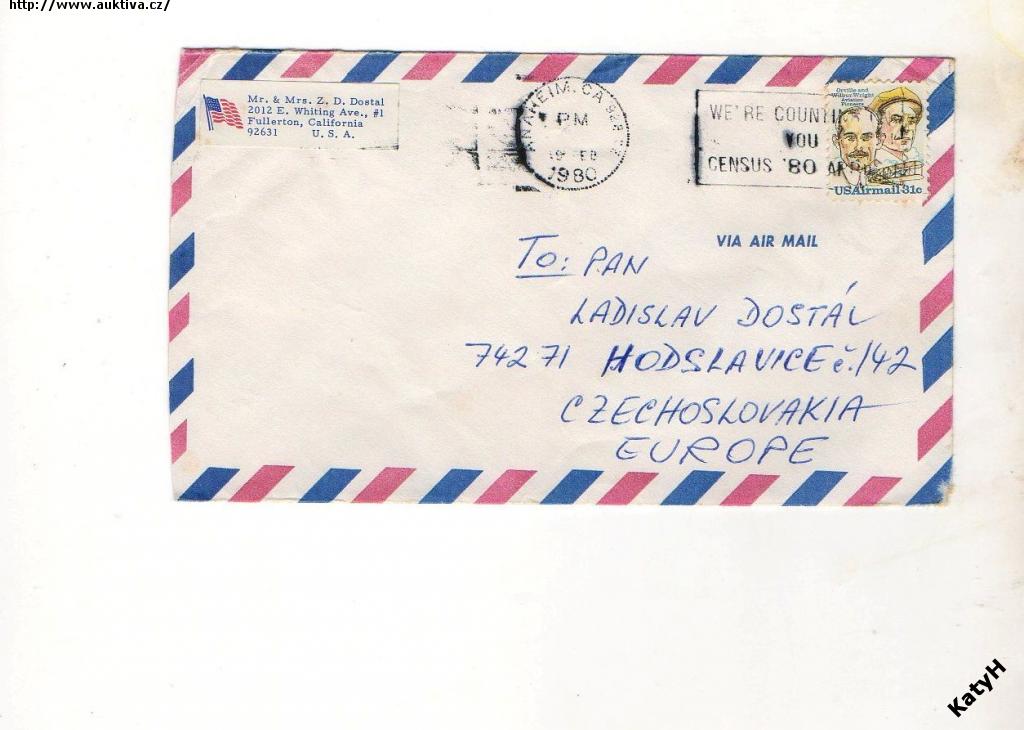 http://www.auktiva.cz/
Mr. & Mrs. Z. D. Dostal
2012 E. Whiting Ave., #1
Fullerton, California
92631 U. S. A.
ANAHEIM, CA
PM
1980
WE'RE COUNTING
YOU
CENSUS '80
Orville and
Wilbur Wright
Aviation
Pioneers
USAirmail 31c
VIA AIR MAIL
To: PAN
LADISLAV DOSTÁL
742 71 HODSLAVICE č./142
CZECHOSLOVAKIA
EUROPE
KatyH